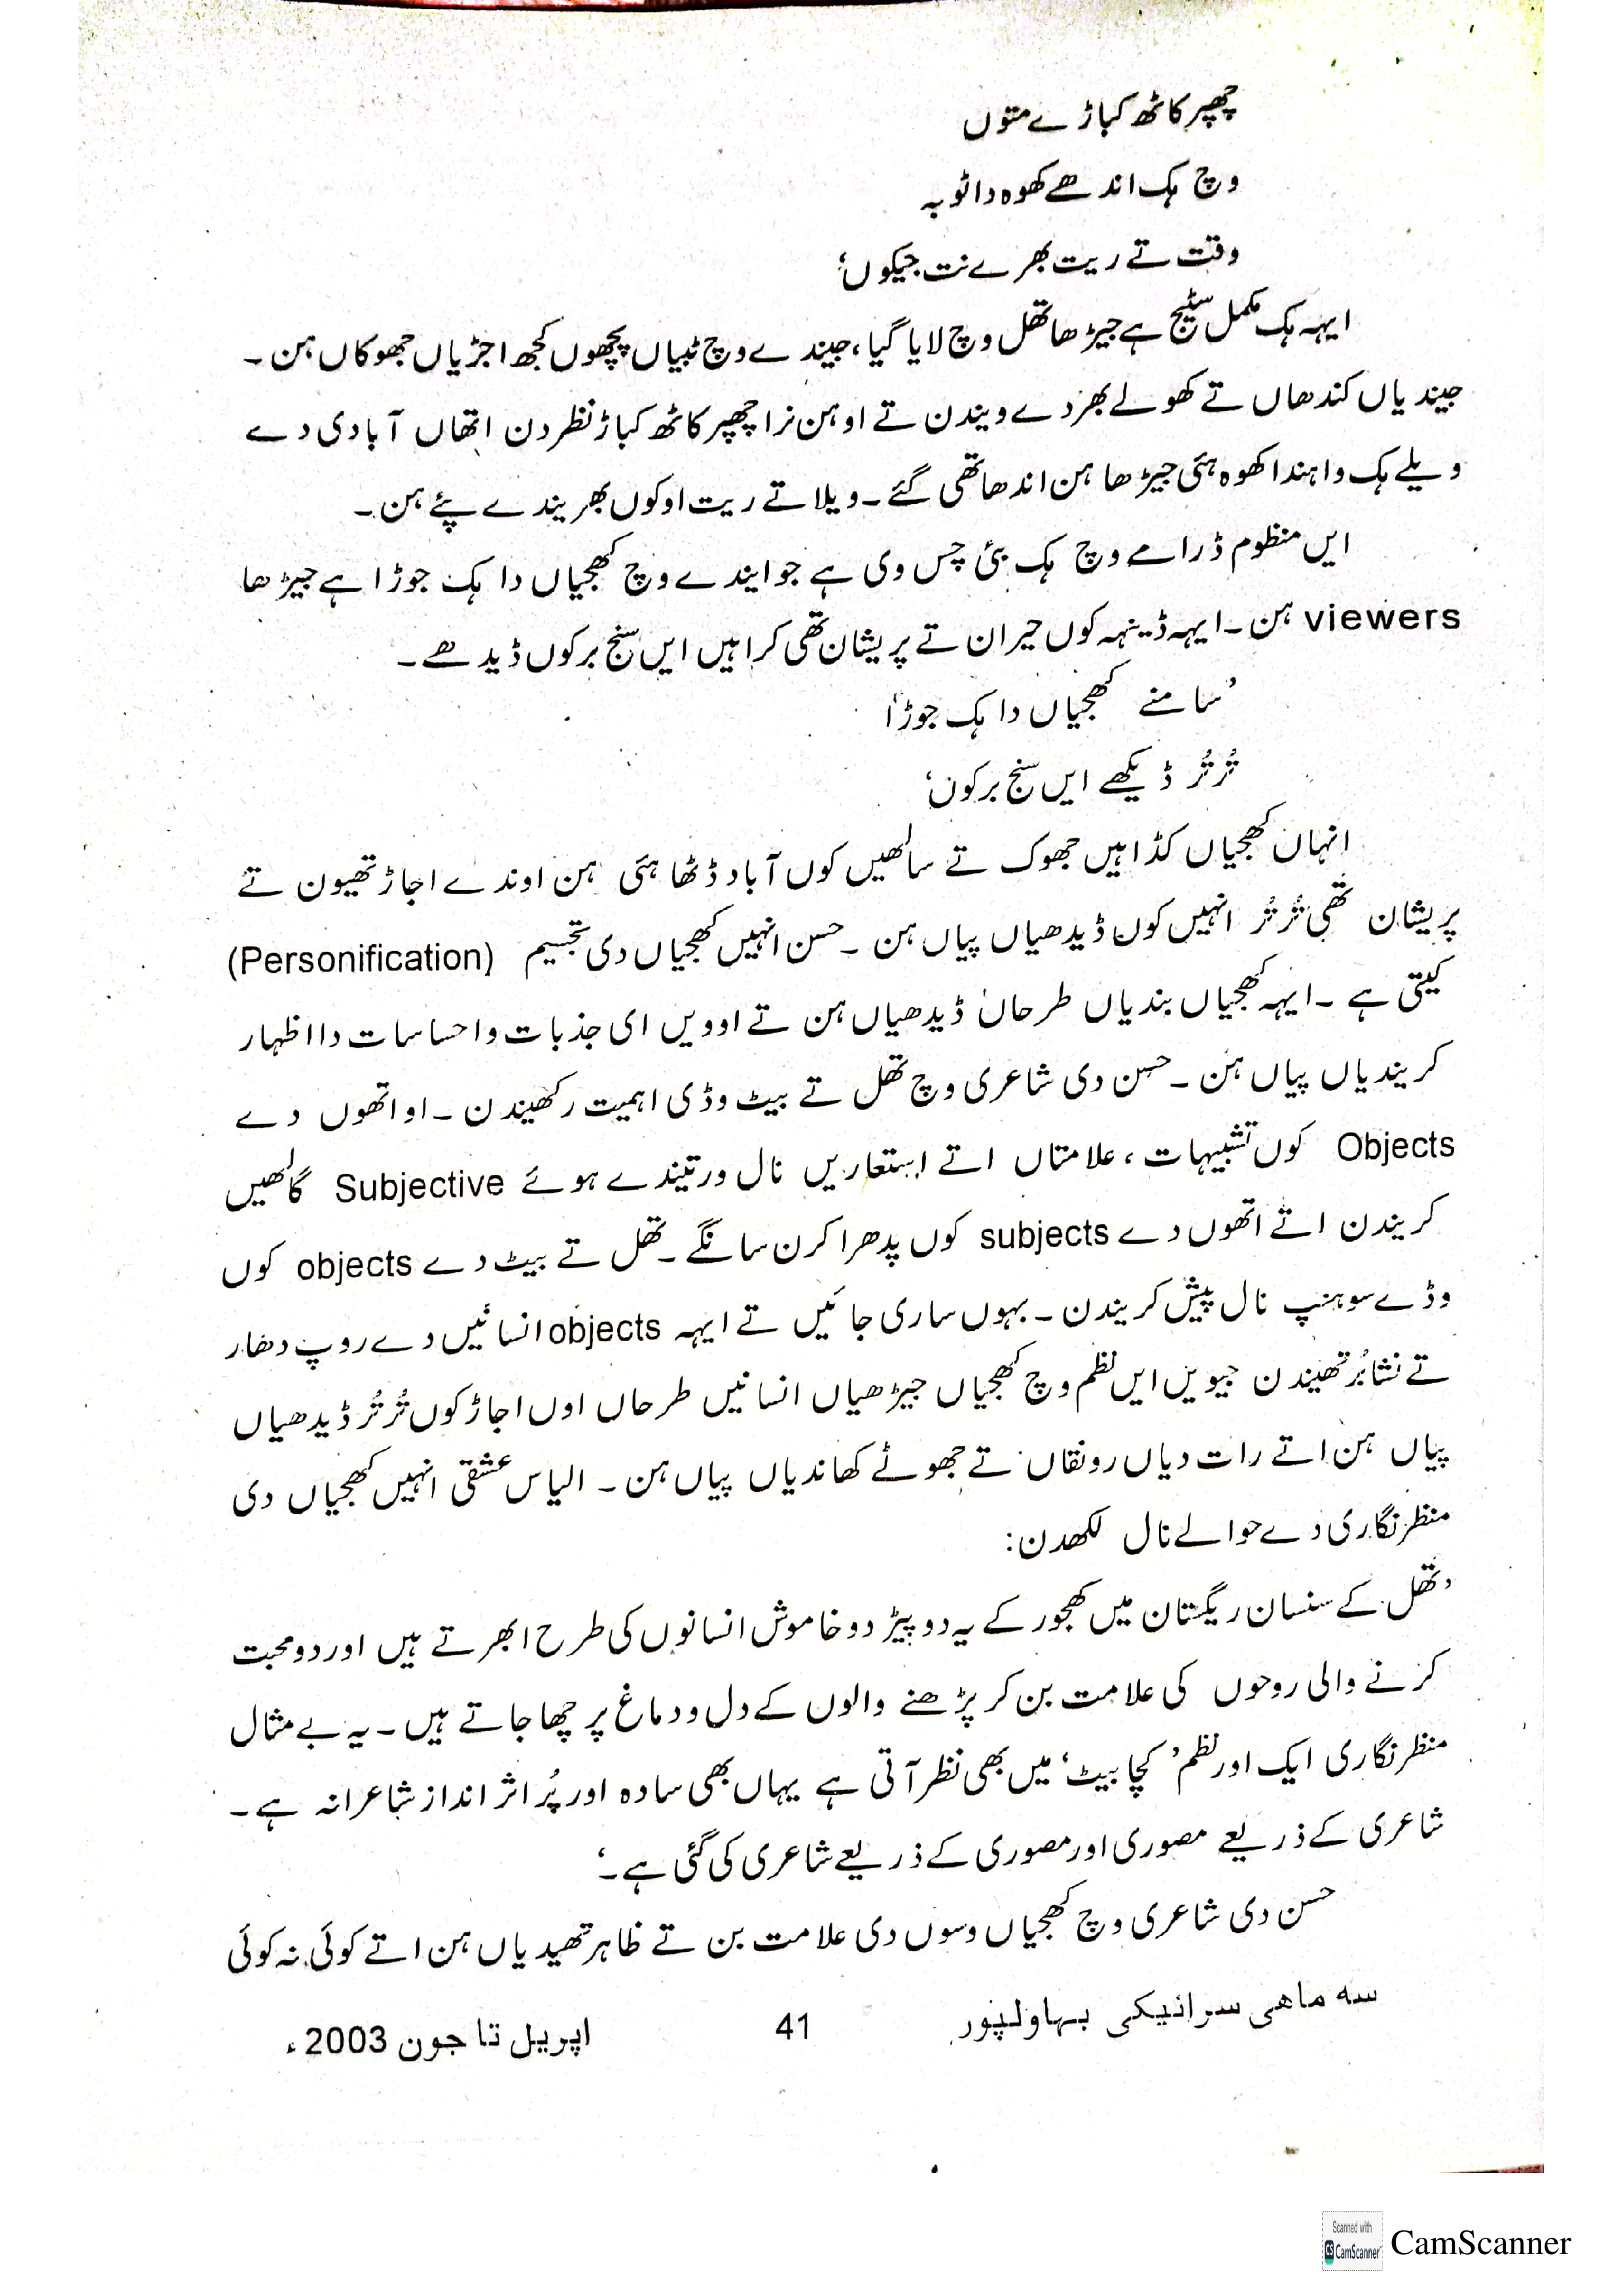 چھپر کاٹھ کباڑے متوں
وچ ہک اندھے کھوہ دا ٹوبہ
وقت تے ریت بھرے نت جیکوں‘
ایہہ ہک مکمل سٹیج ہے جیڑھا تھل وچ لایا گیا، جیندے وچ ٹبیاں پچھوں کجھ اجڑیاں جھوکاں ہن۔
جیندیاں کندھاں تے کھولے بھردے ویندن تے اوہن نرا چھپر کاٹھ کباڑ نظردن اتھاں آبادی دے
ویلے ہک واہندا کھوہ ہئی جیڑھا ہن اندھا تھی گئے۔ ویلا تے ریت اوکوں بھریندے پئے ہن۔
ایں منظوم ڈرامے وچ ہک بئی چس وی ہے جو ایندے وچ کھجیاں دا ہک جوڑا ہے جیڑھا
viewers ہن۔ ایہہ ڈینہہ کوں حیران تے پریشان تھی کراہیں ایں سنج بر کوں ڈیدھے۔
’سامنے کھجیاں دا ہک جوڑا
تُرتُر ڈیکھے ایں سنج بر کوں‘
انہاں کھجیاں کڈاہیں جھوک تے سالھیں کوں آباد ڈٹھا ہئی ہن اوندے اجاڑ تھیون تے
پریشان تھی تُرتُر انہیں کوں ڈیدھیاں پیاں ہن۔ حسن انہیں کھجیاں دی تجسیم (Personification)
کیتی ہے۔ ایہہ کھجیاں بندیاں طرحاں ڈیدھیاں ہن تے اوویں ای جذبات و احساسات دا اظہار
کریندیاں پیاں ہن۔ حسن دی شاعری وچ تھل تے بیٹ وڈی اہمیت رکھیندن۔ او اتھوں دے
Objects کوں تشبیہات، علامتاں اتے استعاریں نال ورتیندے ہوئے Subjective گالھیں
کریندن اتے اتھوں دے subjects کوں پدھرا کرن سانگے۔ تھل تے بیٹ دے objects کوں
وڈے سوہنپ نال پیش کریندن۔ بہوں ساری جائیں تے ایہہ objects انسانیں دے روپ دھار
تے نشابُر تھیندن جیویں ایں نظم وچ کھجیاں جیڑھیاں انسانیں طرحاں اوں اجاڑ کوں تُرتُر ڈیدھیاں
پیاں ہن اتے رات دیاں رونقاں تے جھوٹے کھاندیاں پیاں ہن۔ الیاس عشقی انہیں کھجیاں دی
منظر نگاری دے حوالے نال لکھدن:
’تھل کے سنسان ریگستان میں کھجور کے یہ دو پیڑ دو خاموش انسانوں کی طرح ابھرتے ہیں اور دو محبت
کرنے والی روحوں کی علامت بن کر پڑھنے والوں کے دل و دماغ پر چھا جاتے ہیں۔ یہ بے مثال
منظر نگاری ایک اور نظم ’کچا بیٹ‘ میں بھی نظر آتی ہے یہاں بھی سادہ اور پُر اثر انداز شاعرانہ ہے۔
شاعری کے ذریعے مصوری اور مصوری کے ذریعے شاعری کی گئی ہے۔‘
حسن دی شاعری وچ کھجیاں وسوں دی علامت بن تے ظاہر تھیدیاں ہن اتے کوئی نہ کوئی
سه ماهی سرائیکی بہاولپور 41 اپریل تا جون 2003ء
Scanned with
CS CamScanner CamScanner